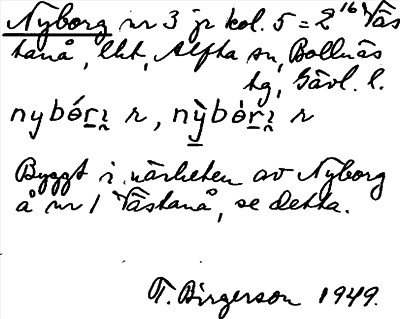 Nyborg nr 3 jr kol. 5 = 2¹⁶ Väs
tanå, lht, Alfta sn, Bollnäs
tg, Gävl. l.
nybórı̣ r, nỳbòrı̣ r
Byggt i närheten av Nyborg
å nr 1 Västanå, se detta.
T. Birgerson 1949.